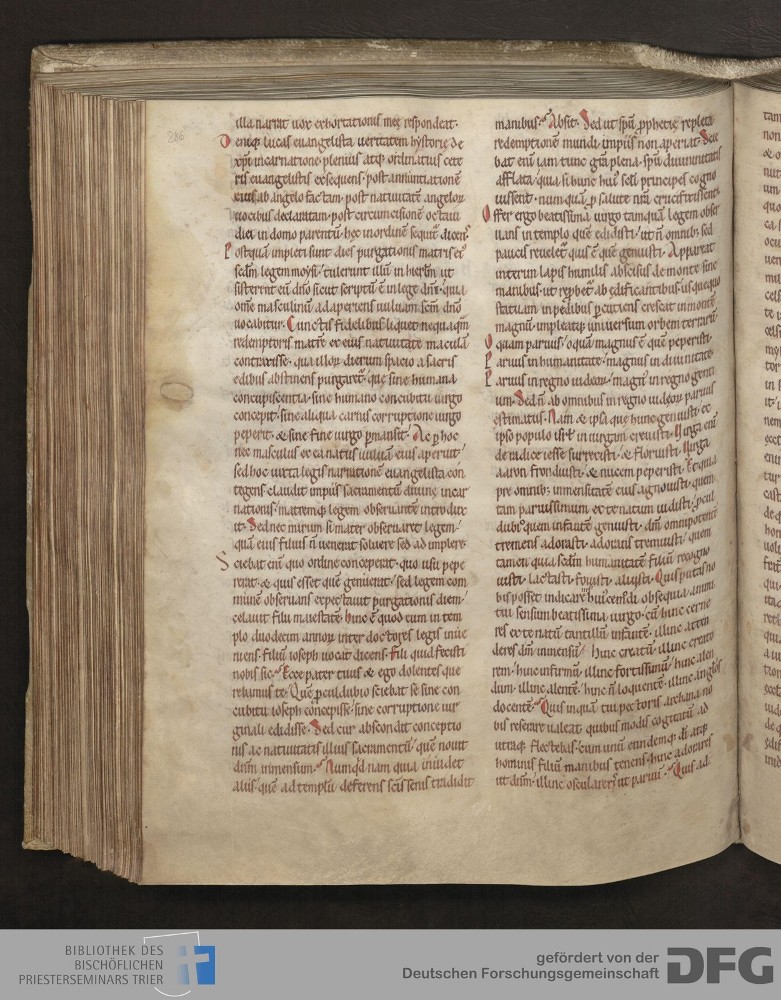 286
illa narrat uox exhortationis meę respondeat.
Deniq; lucas euangelista ueritatem hystorię de
xp̄i incarnatione plenius atq; ordinatius cete
ris euangelistis exsequens. post annuntiationē
eius ab angelo factam. post natiuitatē angeloꝝ
uocibus declaratam. post circumcisionē octaua
die in domo parentū. hęc in ordine sequit̄ dicens.
Postquā impleti sunt dies purgationis matris ei᷒
scdm̄ legem moysi. tulerunt illū in hierłm ut
sisterent eū dn̄o sicut scriptū ē in lege dn̄i. quia
om̄e masculinū adaperiens uuluam scm̄ dn̄o
uocabitur. Cunctis fidelibus liquet nequaqm̄
redemptoris matrē ex eius natiuitate maculā
contraxisse. qua illoꝝ dierum spacio a sacris
ędibus abstinens purgaret̄. quę sine humana
concupiscentia. sine humano concubitu uirgo
concepit. sine aliqua carnis corruptione uirgo
peperit. & sine fine uirgo ꝑmansit. Ac ꝑ hoc
nec masculus ex ea natus uuluā eius aperuit.
sed hoc iuxta legis narrationē euangelista con
tegens claudit impiis sacramentū diuinę incar
nationis. matremq; legem obseruantē introdux
it. Sed nec mirum si mater obseruaret legem.
quā eius filius n̄ uenerat soluere sed adimplere.
Sciebat eni quo ordine conceperat. quo usu pepe
rerat. & quis esset quē genuerat. sed legem com
munē obseruans expectauit purgationis diem.
celauit filii maiestatē. hinc ē quod cum in tem
plo duodecim annoꝝ inter doctores legis inue
niens. filiū ioseph uocat dicens. Fili quid fecisti
nobis sic. Ecce pater tuus & ego dolentes quę
rebamus te. Quę ꝓculdubio sciebat se sine con
cubitu ioseph concepisse. sine corruptione uir
ginali edidisse. Sed cur abscondit conceptio
nis ac natiuitatis illius sacramentū. quē nouit
dn̄m inmensum. Numqd nam quia inuidet
aliis. quē ad templū deferens scis senis tradidit
manibus. Absit. Sed ut sp̄u ꝓphetię repleta
redemptionē mundi. impiis non aperiat. Scie
bat eni iam tunc gr̄a plena. sp̄u diuinitatis
afflata. quia si hunc hui᷒ scli principes cogno
uissent. numquā ꝑ salute nr̄a crucifixissent.
Offer ergo beatissima uirgo tamquā legem obser
uans in templo quē edidisti. ut n̄ omnib; sed
paucis reuelet̄ quis ē quē genuisti. Appareat
interim lapis humilis abscisus de monte sine
manibus. ut reꝓbet̄ ab ędificantibus. usquequo
statuam in pedibus ꝑcutiens crescat in montē
magnū. impleatq; uniuersum orbem terrarū.
O quam paruus. o quā magnus ē quē peperisti.
Paruus in humanitate. magnus in diuinitate.
Paruus in regno iudeoꝝ. magn᷒ in regno genti
um. Sed n̄ ab omnibus in regno iudęoꝝ paruus
estimatus. Nam & ipsa quę hunc genuisti. ex
ipso populo isrl̄ in uirginē creuisti. Virga eni
de radice iesse surrexisti. & floruisti. Virga
aaron fronduisti. & nucem peperisti. Et quia
prę omnib; inmensitatē eius agnouisti. quem
tam paruissimum ex te natum uidisti. ꝓcul
dubio quem infantē genuisti. dn̄m omnipotentē
tremens adorasti. adorans tremuisti. quem
tamen quia scdm̄ humanitatē filiū recogno
uisti. lactasti. fouisti. aluisti. Quis putas no
bis posset indicare hui᷒cemodi obsequia. animi
tui sensum beatissima uirgo. cū hinc cerne
res ex te natū tantillū infantē. illinc atten
deres dm̄ inmensū. hinc creatū. illinc creato
rem. hinc infirmū. illinc fortissimū. hinc alen
dum. illinc alentē. hinc n̄ loquentē. illinc anglos
docentē. Quis inquā tui pectoris archana no
bis reserare ualeat. quibus modis cogitatū ad
utraq; flectebas. cum unū eundemq; di atq;
hominis filiū manibus tenens. hinc adorares
ut dnm̄. illinc oscularer᷒ ut paruū. Quis ad
BIBLIOTHEK DES
BISCHÖFLICHEN
PRIESTERSEMINARS TRIER
gefördert von der
Deutschen Forschungsgemeinschaft
DFG